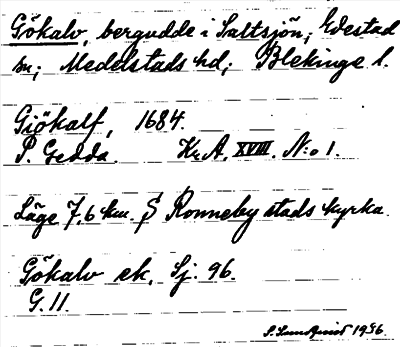 Gökalv, bergudde i Saltsjön; Edestad
sn; Medelstads hd; Blekinge l.
Giökalf, 1684.
P. Gedda. Kr.A. XVIII. N:o 1.
Läge 7,6 km. S Ronneby stads kyrka.
Gökalv ek. Sj. 96.
G. 11.
S. Lundqvist 1936.